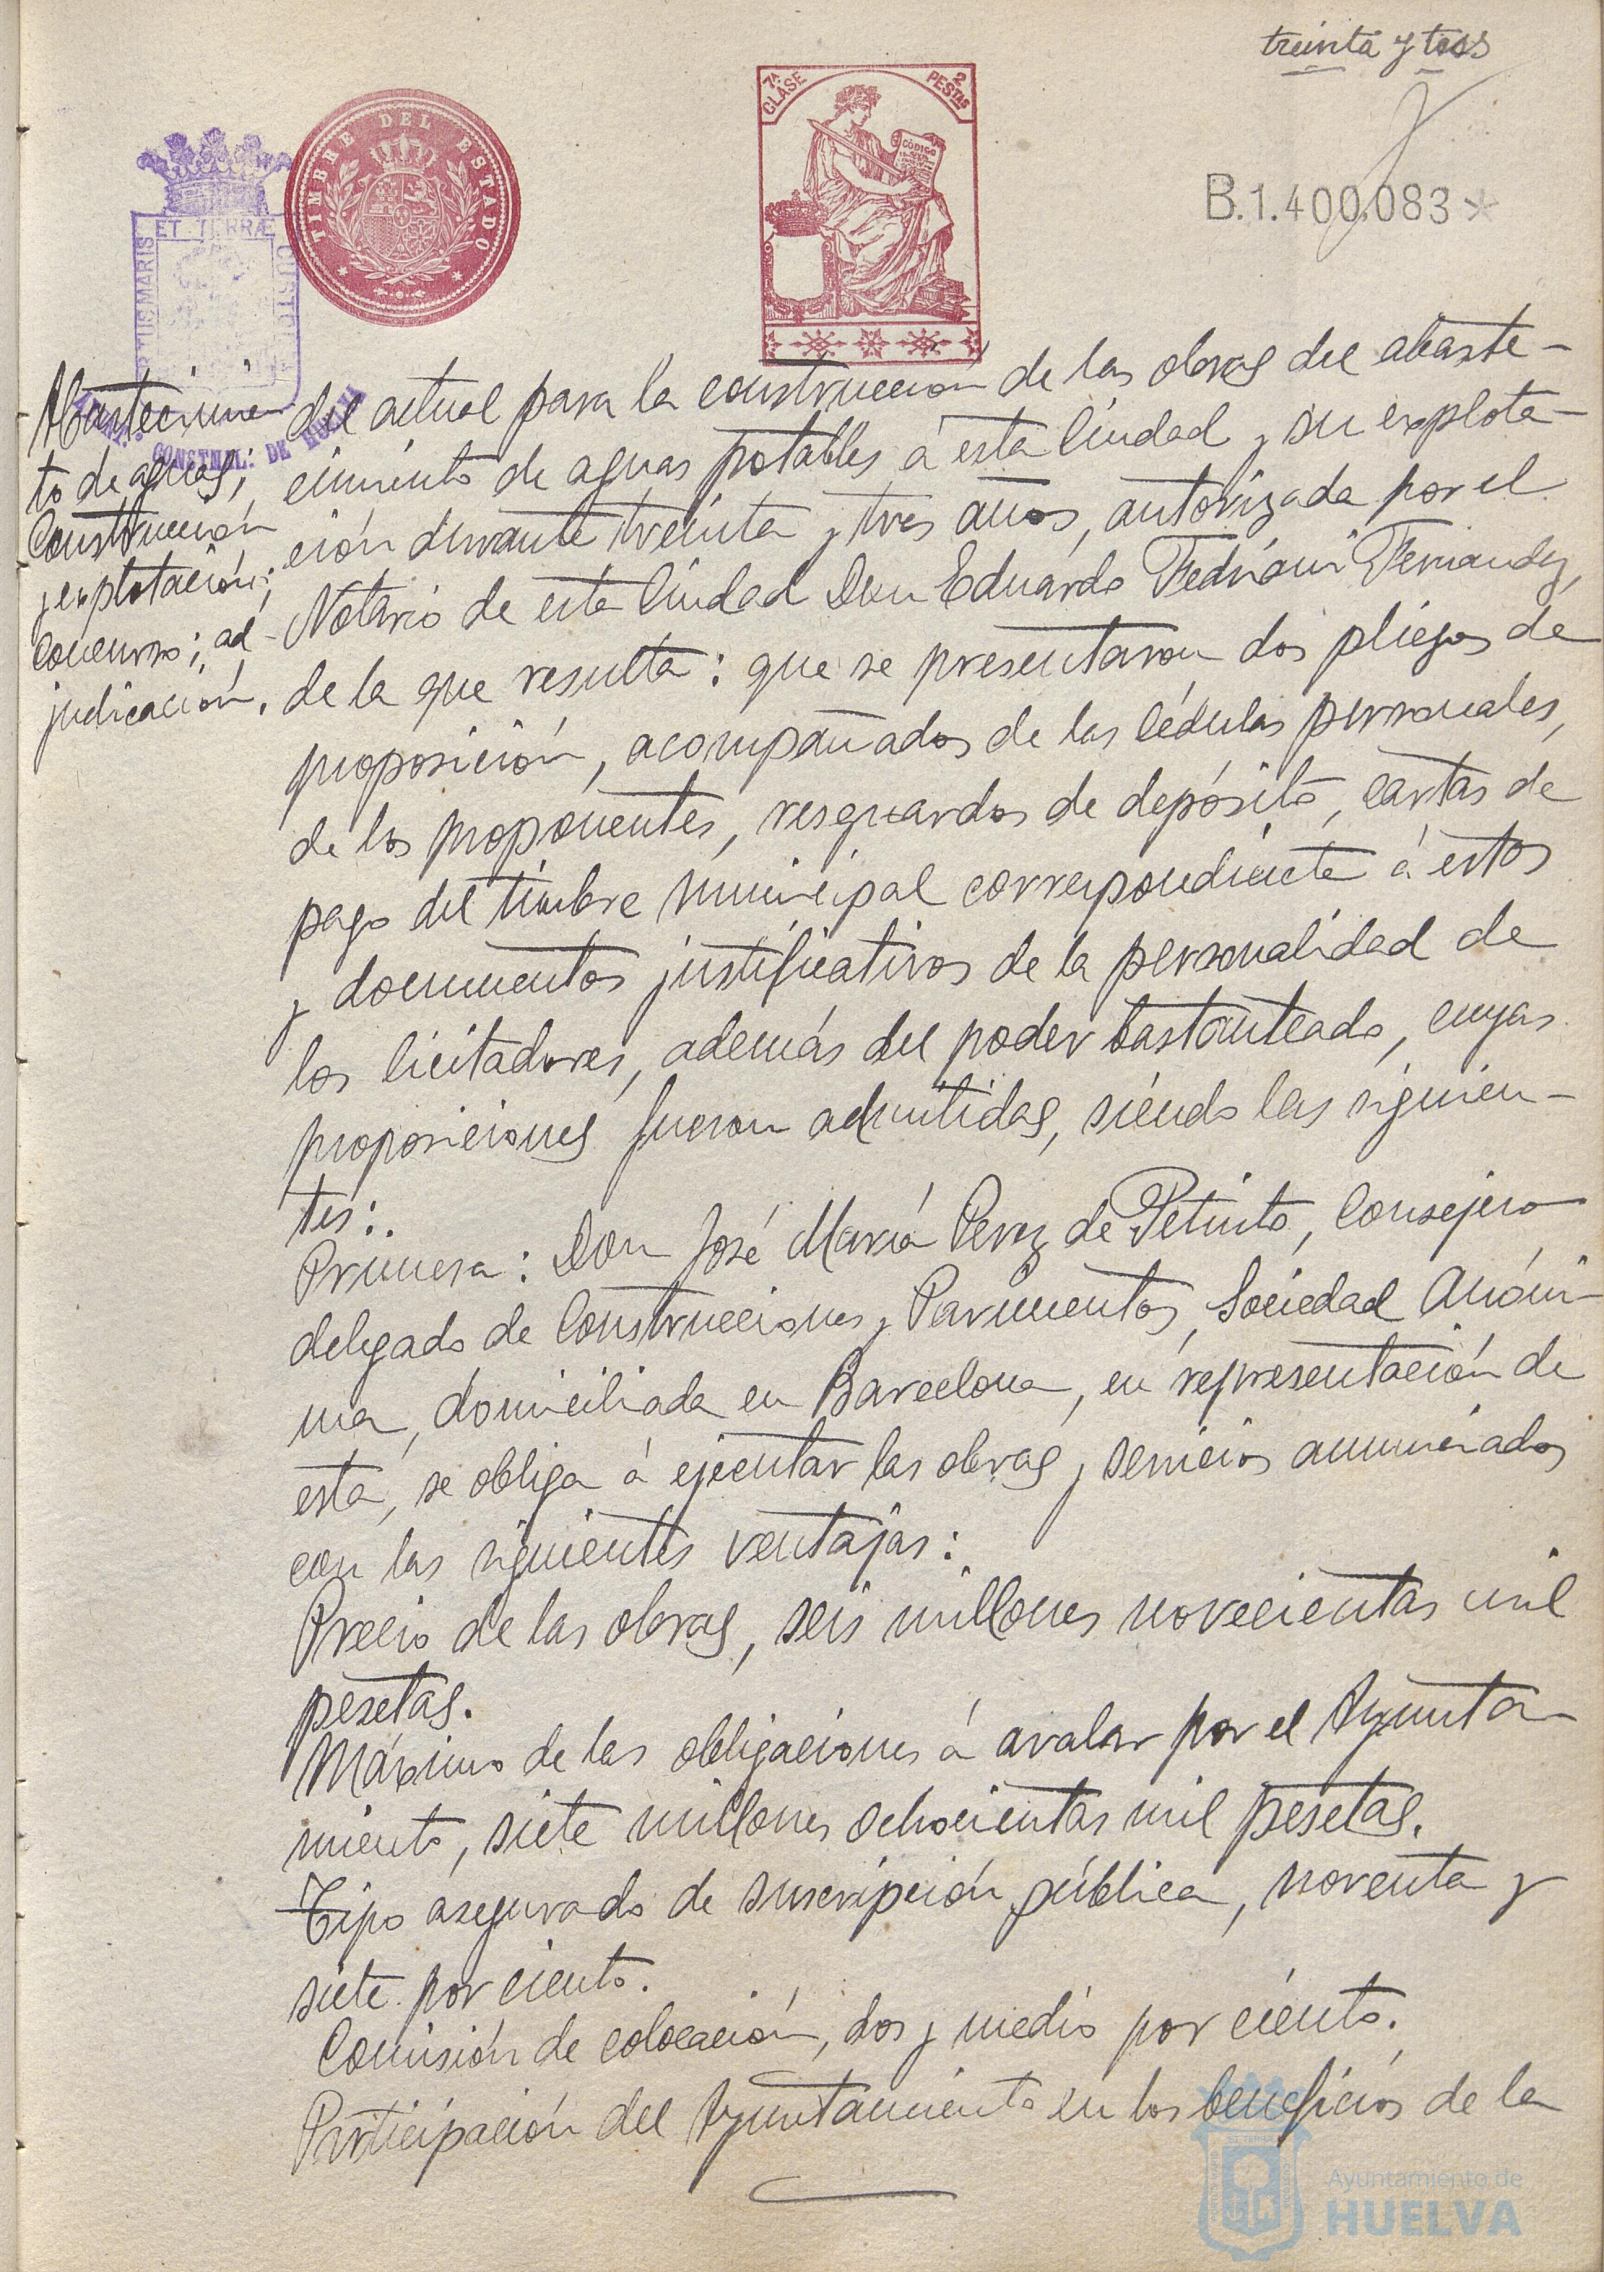 treinta y tres
7ª CLASE
2 PESTAS
CÓDIGO
TIMBRE DEL ESTADO
B.1.400.083*
ET TERRÆ
CUSTO
TUS MARIS
CONSTNAL: DE HUELVA
Abastecimien
to de aguas;
Construcción
y explotación;
Concurso; ad-
judicación.
del actual para la construcción de las obras del abaste-
cimiento de aguas potables á esta Ciudad y su explota-
ción durante treinta y tres años, autorizada por el
Notario de esta Ciudad Don Eduardo Fedriani Fernandez,
de la que resulta: que se presentaron dos pliegos de
proposición, acompañados de las Cédulas personales,
de los proponentes, resguardos de depósito, cartas de
pago del timbre municipal correspondiente á estos
y documentos justificativos de la personalidad de
los licitadores, además del poder bastanteado, cuyas
proposiciones fueron admitidas, siendo las siguien-
tes:.
Primera: Don José María Perez de Petinto, Consejero
delegado de Construcciones y Pavimentos, Sociedad Anóni-
ma, domiciliada en Barcelona, en representación de
esta, se obliga á ejecutar las obras y servicios anunciados
con las siguientes ventajas:
Precio de las obras, seis millones novecientas mil
pesetas.
Máximo de las obligaciones á avalar por el Ayunta-
miento, siete millones ochocientas mil pesetas.
Tipo asegurado de suscripción pública, noventa y
siete por ciento.
Comisión de colocación, dos y medio por ciento.
Participación del Ayuntamiento en los beneficios de la
Ayuntamiento de
HUELVA